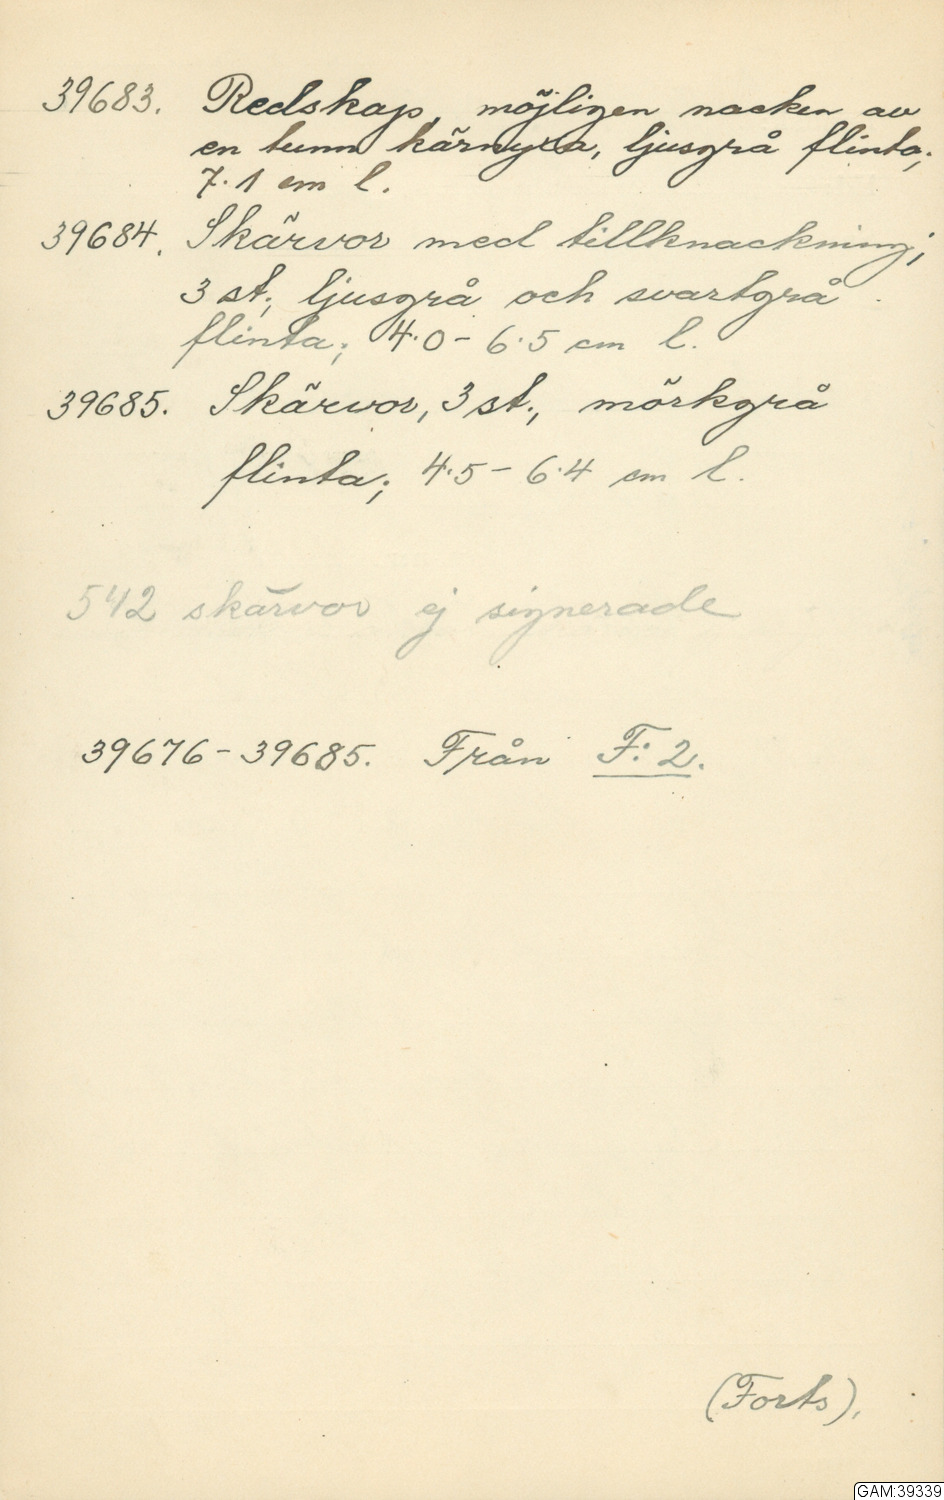 39683. Redskap, möjligen nacken av
en tunn kärnyxa, ljusgrå flinta;
7.1 cm l.
39684. Skärvor med tillknackning;
3 st.; ljusgrå och svartgrå
flinta; 4.0 - 6.5 cm l.
39685. Skärvor, 3 st., mörkgrå
flinta; 4.5 - 6.4 cm l.
542 skärvor ej signerade
39676 - 39685. Från F: 2.
(Forts).
GAM:39339